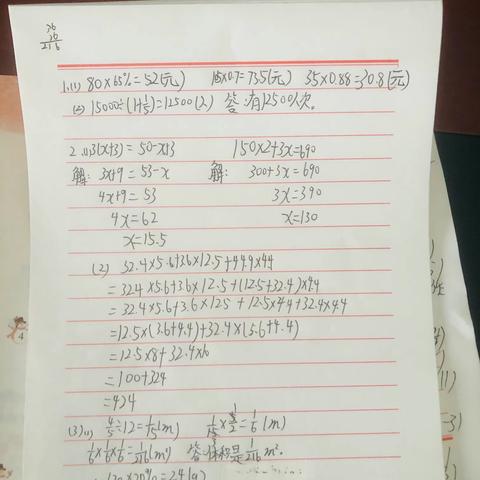 36
216
1.(1) 80×65%=52(元) 105×0.7=73.5(元) 35×0.88=30.8(元)
(2) 15000÷(1+1/5)=12500(人) 答:有12500人次。
2.(1)3(x+3)=50-x+3 150×2+3x=690
解: 3x+9=53-x 解: 300+3x=690
4x+9=53 3x=390
4x=62 x=130
x=15.5
(2) 32.4×5.6+3.6×12.5+44.9×4.4
=32.4×5.6+3.6×12.5+(12.5+32.4)×4.4
=32.4×5.6+3.6×12.5+12.5×4.4+32.4×4.4
=12.5×(3.6+4.4)+32.4×(5.6+4.4)
=12.5×8+32.4×10
=100+324
=424
(3)(1) 4/5÷12=1/15(m) 1/15×5/2=1/6(m)
1/6×1/6×1/6=1/216(m³) 答:体积是1/216m³。
120×20%=24(g)